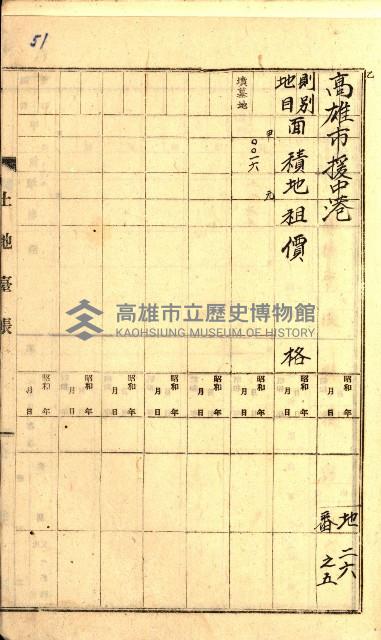 51
乙
高雄市援中港
地番
二六之五
則別
地目
面積
地租
價格
甲
元
墳墓地
〇〇一六
昭和 年 月 日
昭和 年 月 日
昭和 年 月 日
昭和 年 月 日
昭和 年 月 日
昭和 年 月 日
昭和 年 月 日
昭和 年 月 日
土地臺帳
高雄市立歷史博物館
KAOHSIUNG MUSEUM OF HISTORY